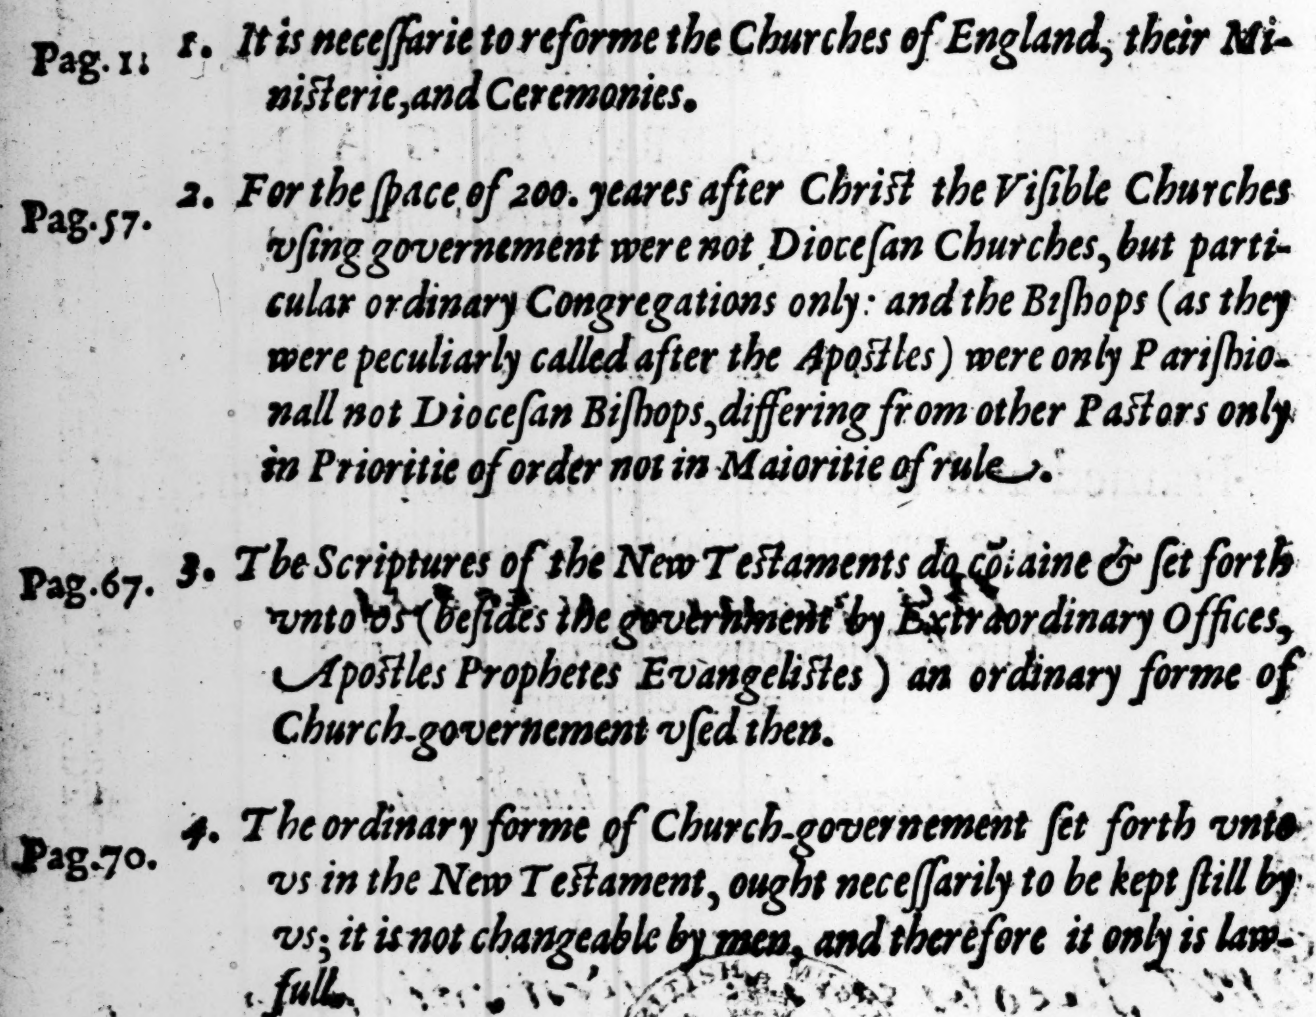 Pag. 1. 1. It is neceſſarie to reforme the Churches of England, their Mi-
niſterie, and Ceremonies.
Pag. 57. 2. For the ſpace of 200. yeares after Chriſt the Viſible Churches
vſing governement were not Dioceſan Churches, but parti-
cular ordinary Congregations only: and the Biſhops (as they
were peculiarly called after the Apoſtles) were only Pariſhio-
nall not Dioceſan Biſhops, differing from other Paſtors only
in Prioritie of order not in Maioritie of rule.
Pag. 67. 3. The Scriptures of the New Teſtaments do cõtaine & ſet forth
vnto vs (beſides the government by Extraordinary Offices,
Apoſtles Prophetes Evangeliſtes) an ordinary forme of
Church-governement vſed then.
Pag. 70. 4. The ordinary forme of Church-governement ſet forth vnto
vs in the New Teſtament, ought neceſſarily to be kept ſtill by
vs; it is not changeable by men, and therefore it only is law-
full.